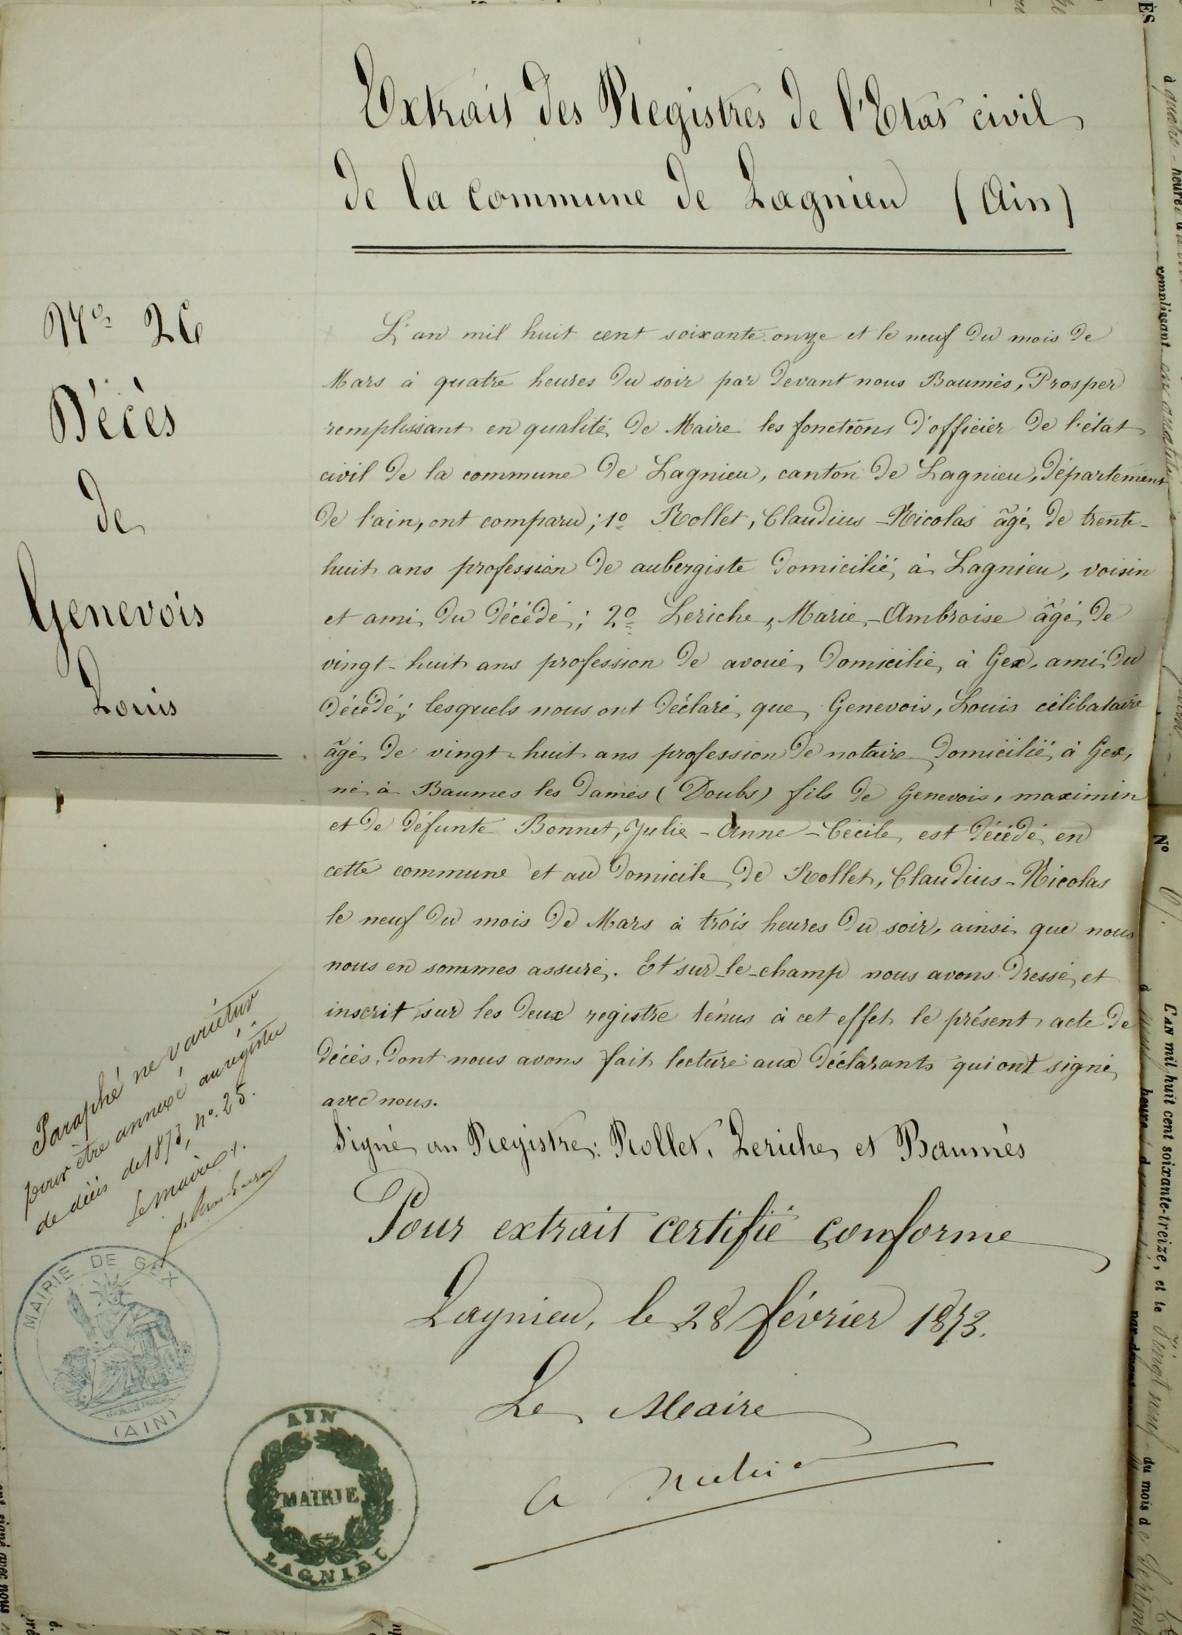 Extrait des Registres de l'Etat civil
de la commune de Lagnieu (Ain)
No 26
Décès
de
Genevois
Louis
L'an mil huit cent soixante onze et le neuf du mois de
Mars à quatre heures du soir par devant nous Baumès, Prosper
remplissant en qualité de Maire les fonctions d'officier de l'état
civil de la commune de Lagnieu, canton de Lagnieu, département
de l'ain, ont comparu; 1o Rollet, Claudius-Nicolas âgé de trente-
huit ans profession de aubergiste domicilié à Lagnieu, voisin
et ami du décédé; 2o Leriche, Marie-Ambroise âgé de
vingt-huit ans profession de avoué domicilié à Gex, ami du
décédé; lesquels nous ont déclaré que Genevois, Louis célibataire
âgé de vingt-huit ans profession de notaire domicilié à Gex,
né à Baumes les dames (Doubs) fils de Genevois, maximin
et de défunte Bonnet, Julie-Anne-Cécile est décédé en
cette commune et au domicile de Rollet, Claudius-Nicolas
le neuf du mois de Mars à trois heures du soir, ainsi que nous
nous en sommes assuré. Et sur-le-champ nous avons dressé et
inscrit sur les deux registre ténus à cet effet le présent acte de
décès. dont nous avons fait lecture aux déclarants qui ont signé
avec nous.
Signé au Registre: Rollet, Leriche et Baumès
Pour extrait certifié conforme
Lagnieu, le 28 février 1873.
Le Maire
Paraphé ne varietur
pour être annexé au régistre
de décès de 1873, no. 25.
Le maire
MAIRIE DE GEX
(AIN)
AIN
MAIRIE
LAGNIEU
ÈS
à quatre heures
remplissant en qualité
No
L'AN mil huit cent soixante-treize, et le Vingt neuf du mois de Septemb
par devant